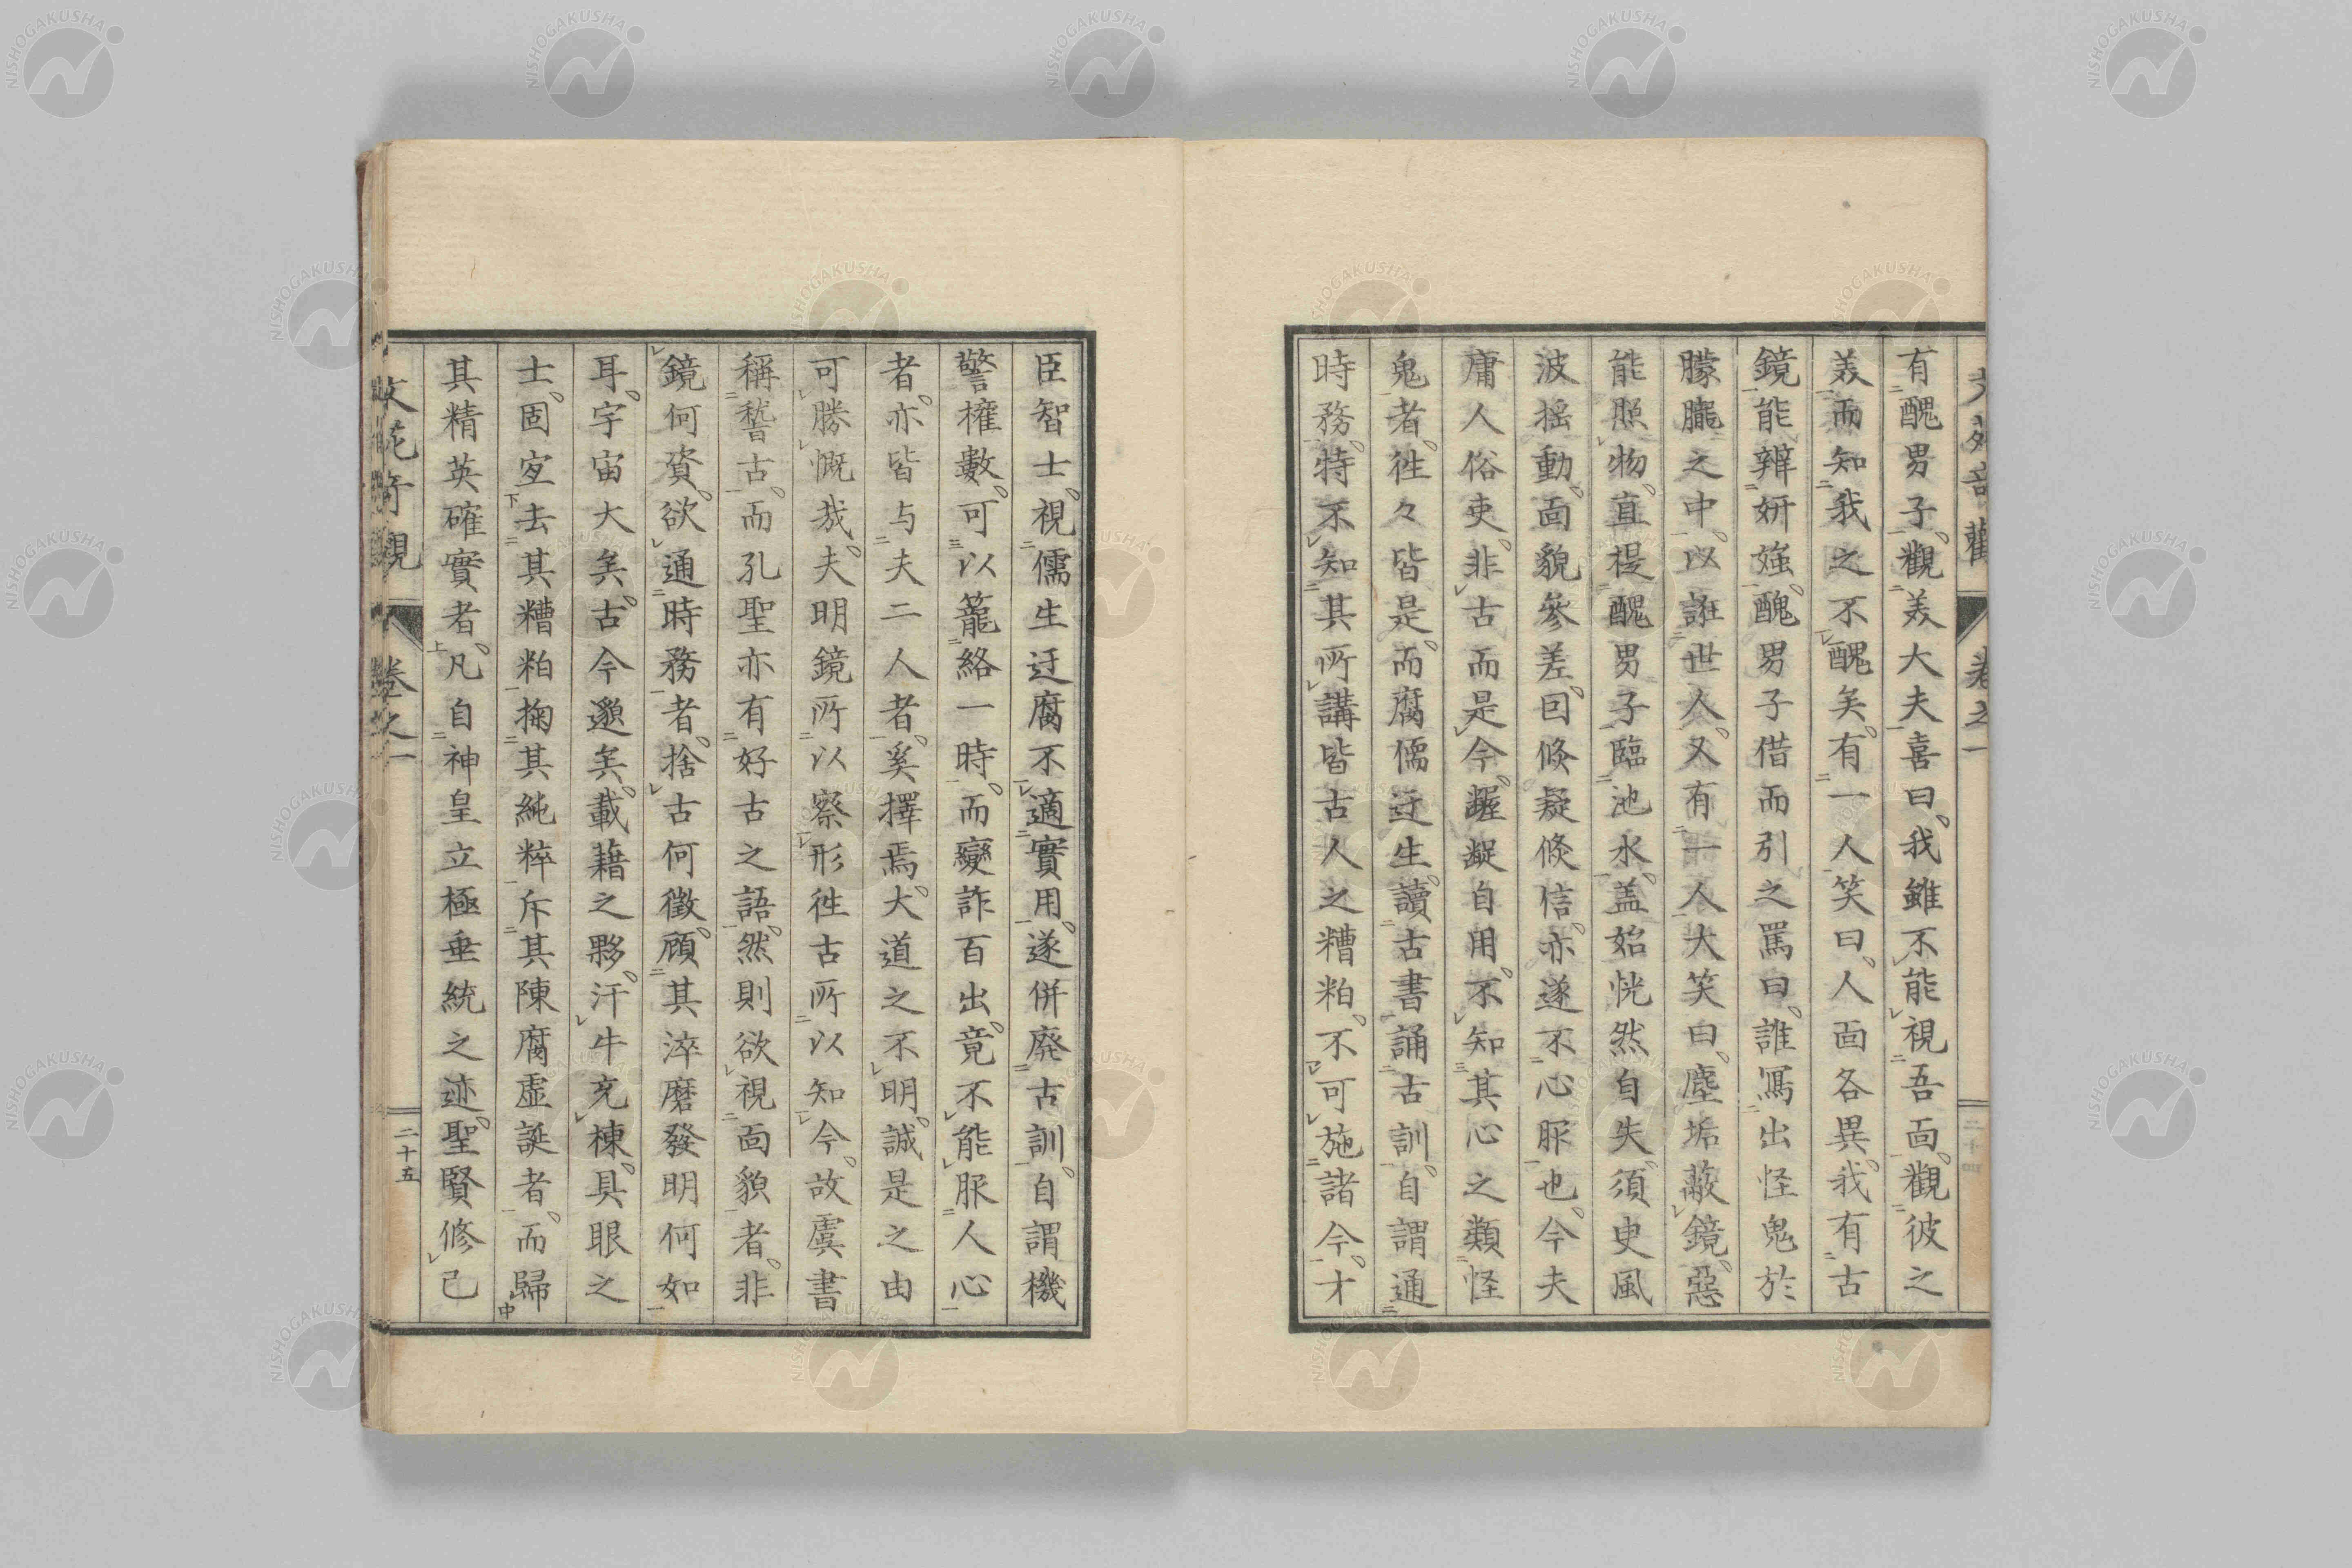 有醜男子觀美大夫喜曰我雖不能視吾面觀彼之
美而知我之不醜矣有一人笑曰人面各異我有古
鏡能辨妍媸醜男子借而引之罵曰誰寫出怪鬼於
朦朧之中以誑世人又有一人大笑曰塵垢蔽鏡惡
能照物直提醜男子臨池水盖始恍然自失須臾風
波揺動面貌參差回倏疑倏信亦遂不心服也今夫
庸人俗吏非古而是今齷齪自用不知其心之類怪
鬼者徃々皆是而腐儒迂生讀古書誦古訓自謂通
時務特不知其所講皆古人之糟粕不可施諸今才
臣智士視儒生迂腐不適實用遂併廢古訓自謂機
警權數可以籠絡一時而變詐百出竟不能服人心
者亦皆与夫二人者奚擇焉大道之不明誠是之由
可勝慨㦲夫明鏡所以察形徃古所以知今故虞書
稱稽古而孔聖亦有好古之語然則欲視面貌者非
鏡何資欲通時務者捨古何徵顧其淬磨發明何如
耳宇宙大矣古今邈矣載藉之夥汗牛充棟具眼之
士固宜去其糟粕掬其純粹斥其陳腐虛誕者而歸
其精英確實者凡自神皇立極垂統之迹聖賢修己
卷之一
二十五
NISHOGAKUSHA